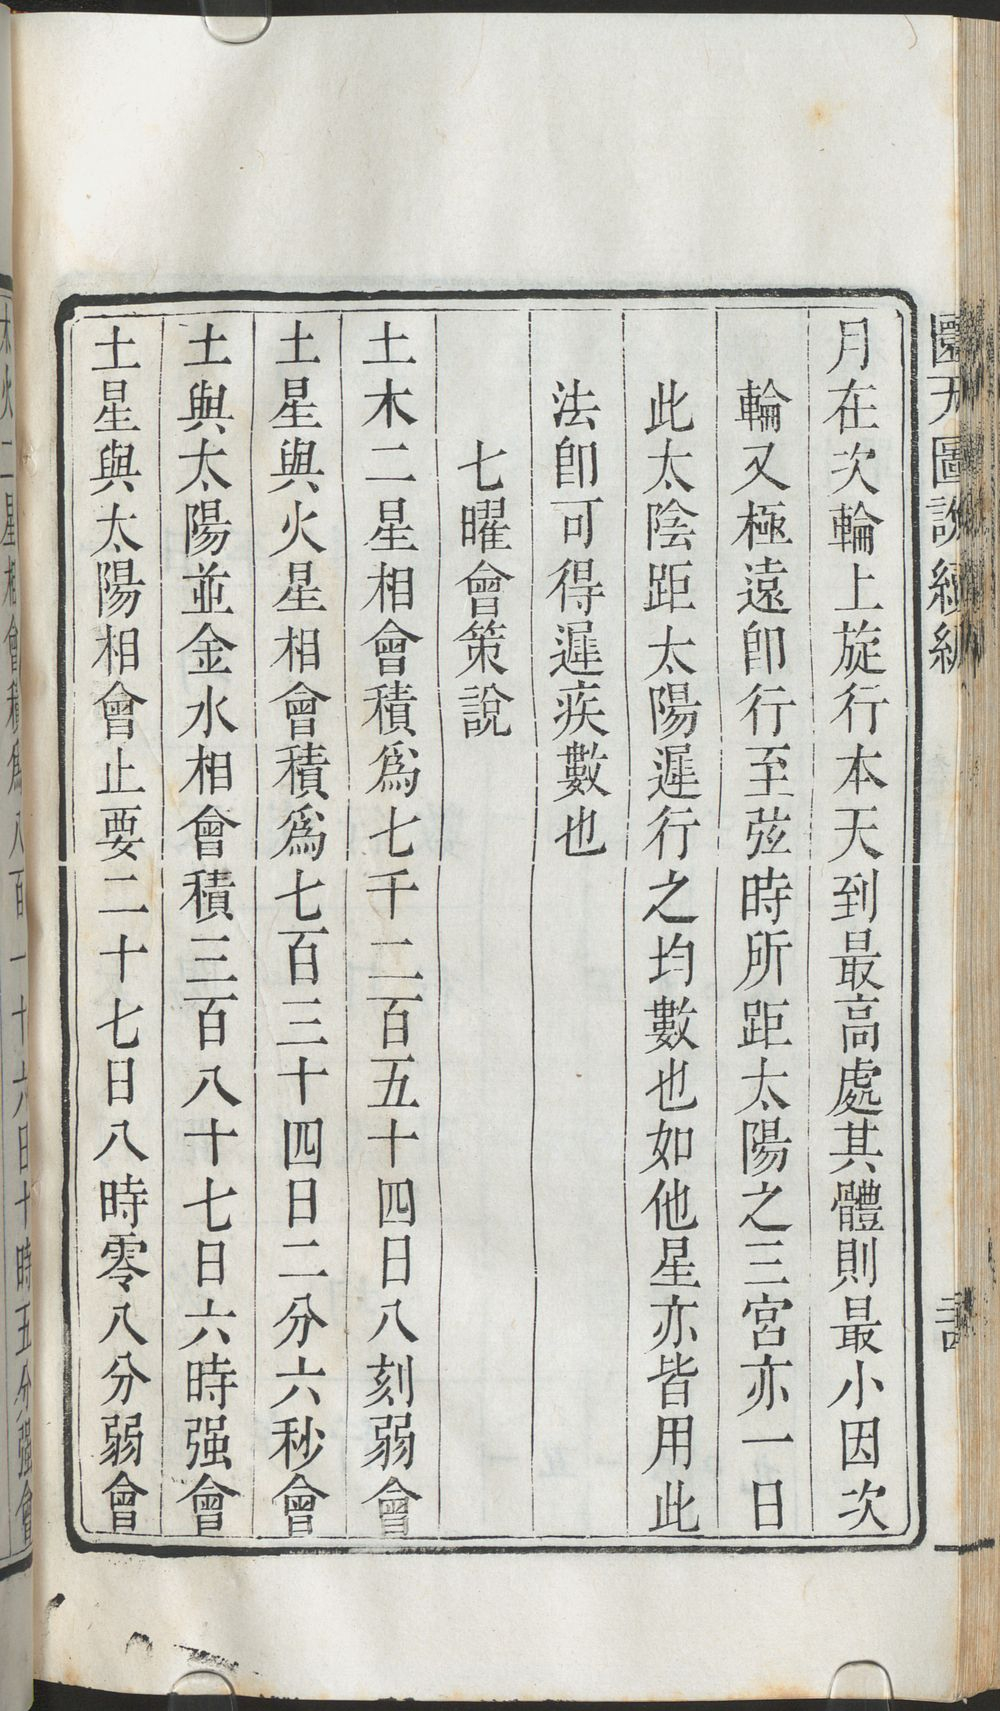 圜天圖說續編
月在次輪上旋行本天到最高處其體則最小因次
輪又極遠卽行至弦時所距太陽之三宮亦一日
此太陰距太陽遲行之均數也如他星亦皆用此
法卽可得遲疾數也
七曜會策說
土木二星相會積爲七千二百五十四日八刻弱會
土星與火星相會積爲七百三十四日二分六秒會
土與太陽並金水相會積三百八十七日六時强會
土星與太陽相會止要二十七日八時零八分弱會
木火二星相會積爲八百一十六日十時五分强會